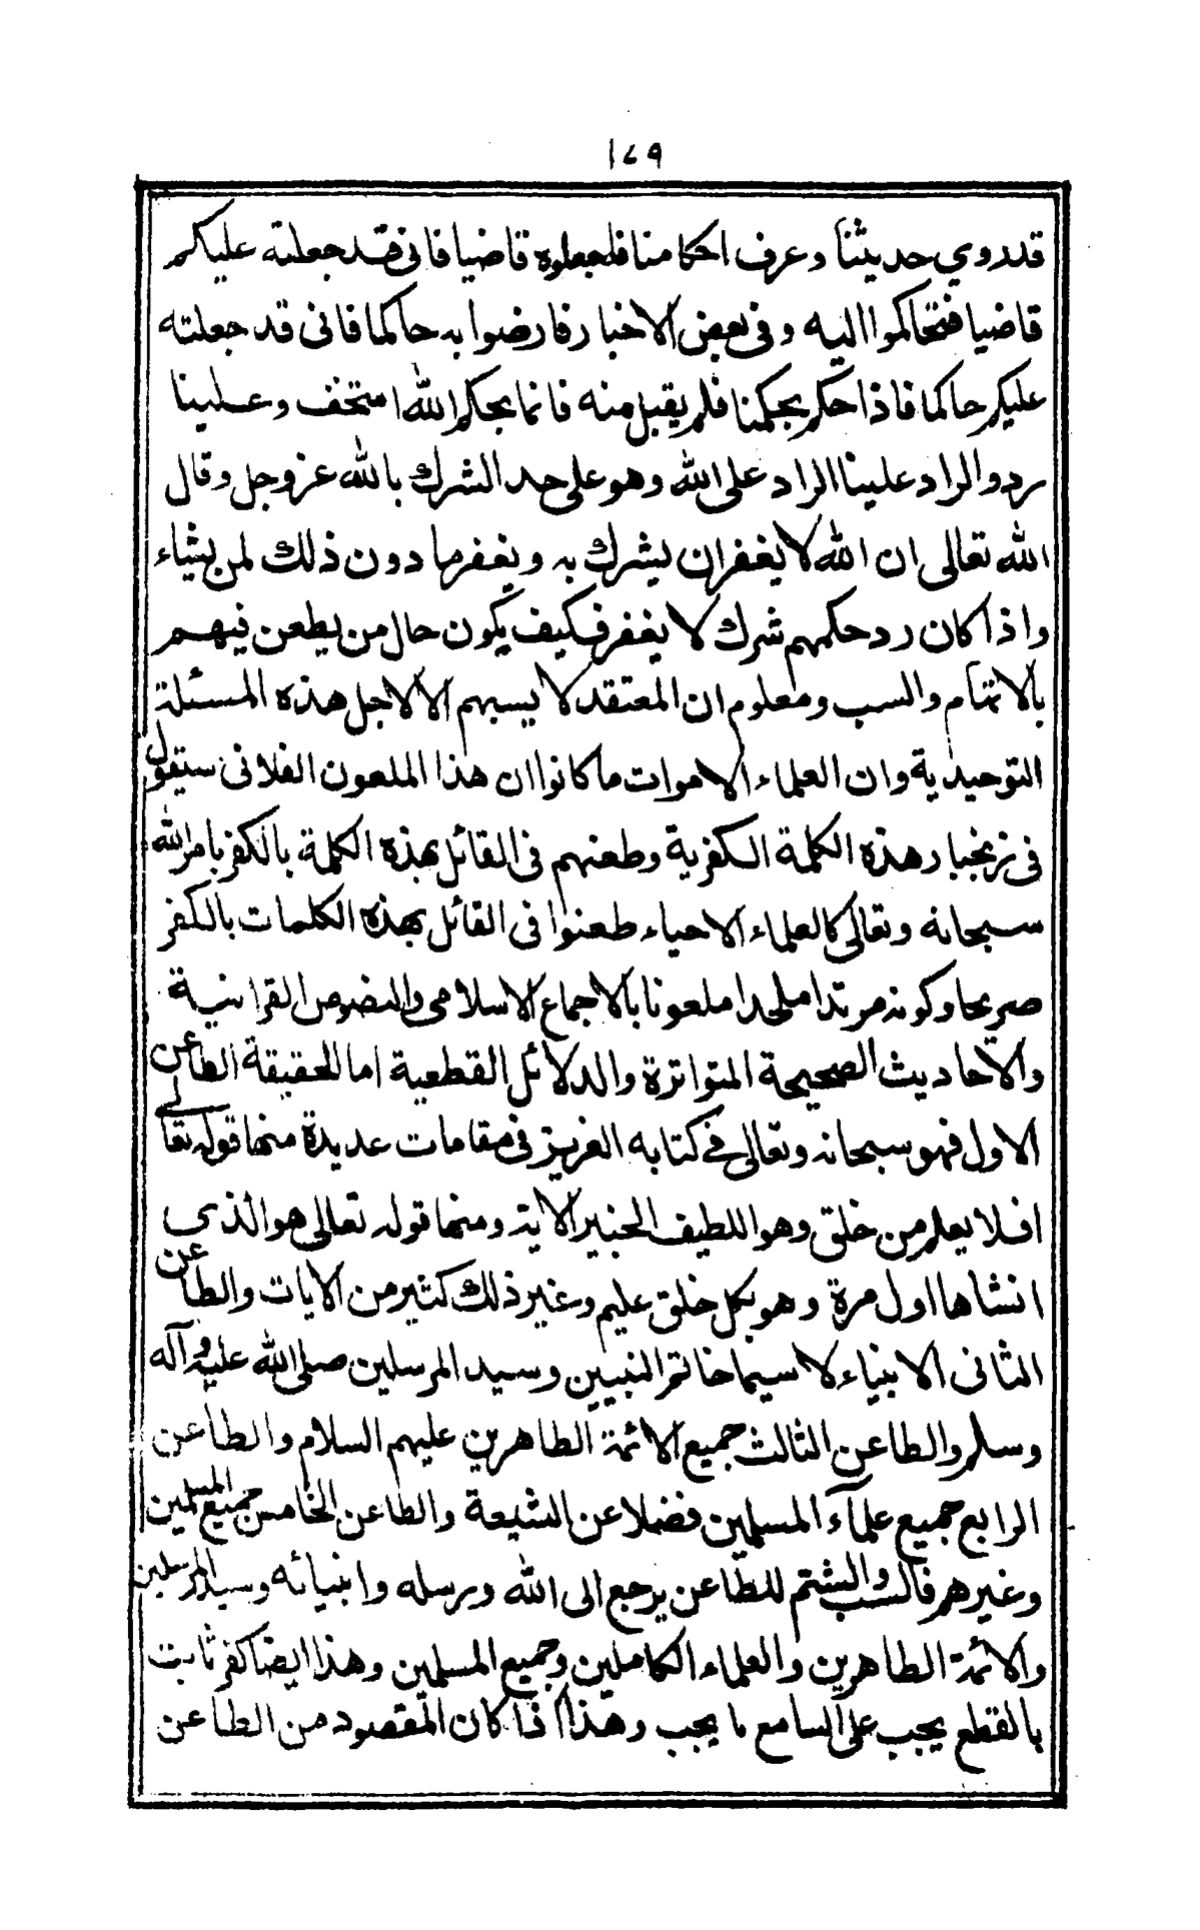 ١٧٩
قد روي حديثنا وعرف احكامنا فلجعلوه قاضيا فانى فقد جعلته عليكم
قاضيا فتحاكموا اليه وفى بعض الاخبار فارضوا به حاكما فانى قد جعلته
عليكم حاكما فاذا حكم بحكمنا فلم يقبل منه فانما بحكم الله استخف وعلينا
رد والراد علينا الراد على الله وهو على حد الشرك بالله عز وجل وقال
الله تعالى ان الله لا يغفر ان يشرك به ويغفر ما دون ذلك لمن يشاء
واذا كان رد حكمهم شرك لا يغفر فكيف يكون حال من يطعن فيهم
بالاتهام والسب ومعلوم ان المعتقد لا يسبهم الا لاجل هذه المسئلة
التوحيدية وان العلماء الاموات ما كانوا ان هذا الملعون الفلانى سيقول
فى زنجبار هذه الكلمة الكفرية وطعنهم فى القائل بهذه الكلمة بالكفر بامر الله
سبحانه وتعالى كالعلماء الاحياء طعنوا فى القائل بهذه الكلمات بالكفر
صريحا وكونه مرتدا ملحدا ملعونا بالاجماع الاسلامى والنصوص القرانية
والاحاديث الصحيحة المتواترة والدلائل القطعية اما الحقيقة الطاعن
الاول فهو سبحانه وتعالى في كتابه العزيز فى مقامات عديدة منها قوله تعالى
افلا يعلم من خلق وهو اللطيف الخبير الاية ومنها قوله تعالى هو الذي
انشاها اول مرة وهو بكل خلق عليم وغير ذلك كثير من الايات والطاعن
الثانى الانبياء لا سيما خاتم النبيين وسيد المرسلين صلى الله عليه وآله
وسلم والطاعن الثالث جميع الائمة الطاهرين عليهم السلام والطاعن
الرابع جميع علمآء المسلمين فضلا عن الشيعة والطاعن الخامس جميع المسلمين
وغيرهم فالسب والشتم للطاعن يرجع الى الله ورسله وانبيائه وسيد المرسلين
والائمة الطاهرين والعلماء الكاملين وجميع المسلمين وهذا ايضا كفر ثابت
بالقطع يجب على السامع ما يجب وهذا اذا كان المقصود من الطاعن